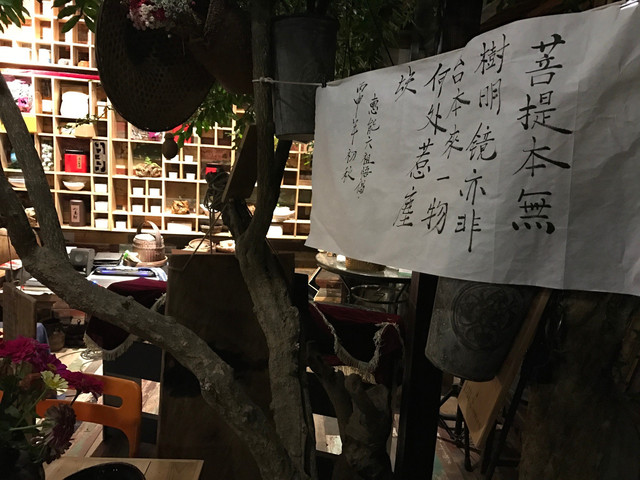 菩提本無
樹明鏡亦非
台本來一物
何处惹塵
埃
惠能六祖悟偈
甲午初秋